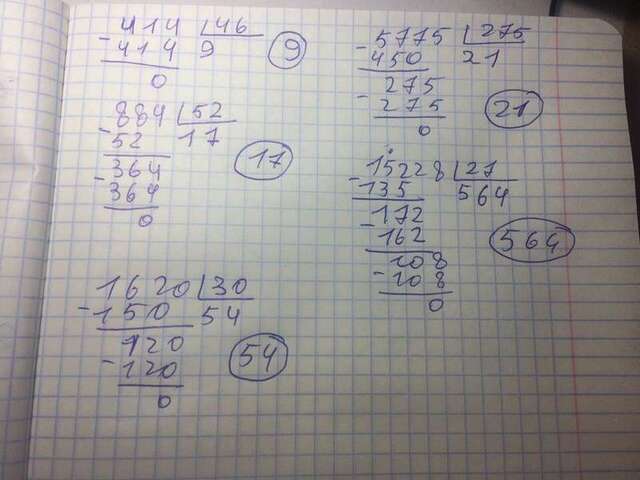 414 46
-414 9 9
0
884 52
-52 17 17
364
-364
0
1620 30
-150 54 54
120
-120
0
5775 275
-450 21
275
-275 21
0
15228 27
-135 564
172
-162 564
108
-108
0